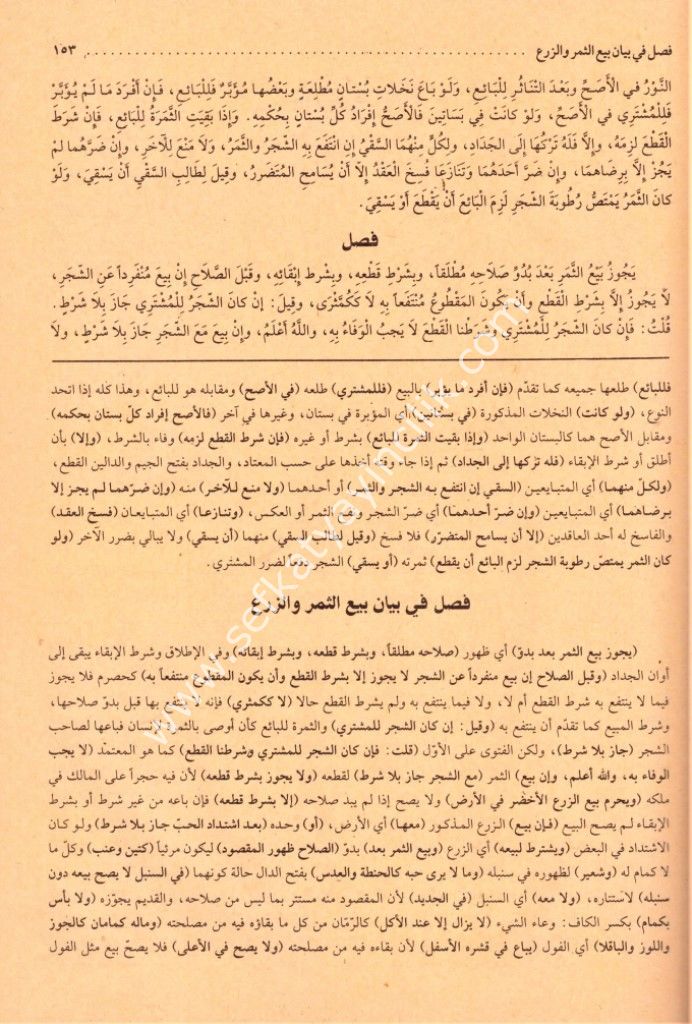 فصل في بيان بيع الثمر والزرع ........................................ ١٥٣
النَّوْرُ في الأَصَحِّ وَبَعْدَ التَّنَاثُرِ لِلْبَائِعِ، وَلَوْ بَاعَ نَخَلَاتِ بُسْتَانٍ مُطْلِعَةً وَبَعْضُهَا مُؤَبَّرٌ فَلِلْبَائِعِ، فَإِنْ أَفْرَدَ مَا لَمْ يُؤَبَّرْ
فَلِلْمُشْتَرِي في الأَصَحِّ، وَلَوْ كَانَتْ فِي بَسَاتِينَ فَالْأَصَحُّ إِفْرَادُ كُلِّ بُسْتَانٍ بِحُكْمِهِ. وَإِذَا بَقِيَتِ الثَّمَرَةُ لِلْبَائِعِ، فَإِنْ شُرِطَ
الْقَطْعُ لَزِمَهُ، وَإِلَّا فَلَهُ تَرْكُهَا إِلَى الْجَدَادِ، ولكُلٍّ مِنْهُمَا السَّقْيُ إِنِ انْتَفَعَ بِهِ الشَّجَرُ وَالثَّمَرُ، وَلَا مَنْعَ لِلْآخَرِ، وَإِنْ ضَرَّهُما لمْ
يَجُزْ إِلَّا بِرِضَاهِمَا، وَإِنْ ضَرَّ أَحَدَهُمَا وَتَنَازَعَا فُسِخَ العَقْدُ إِلَّا أَنْ يُسَامِحَ المُتَضَرِّرُ، وَقِيلَ لِطَالِبِ السَّقْيِ أَنْ يَسْقِيَ، وَلَوْ
كانَ الثَّمَرُ يَمْتَصُّ رُطُوبَةَ الشَّجَرِ لَزِمَ الْبَائِعَ أَنْ يَقْطَعَ أَوْ يَسْقِيَ.
فصل
يَجُوزُ بَيْعُ الثَّمَرِ بَعْدَ بُدُوِّ صَلَاحِهِ مُطْلَقاً، وَبِشَرْطِ قَطْعِهِ، وبِشَرط إِبْقَائِهِ، وقَبْلَ الصَّلَاحِ إِنْ بِيعَ مُنْفَرِداً عَنِ الشَّجَرِ،
لَا يَجُوزُ إِلَّا بِشَرْطِ الْقَطْعِ وأَنْ يَكُونَ المَقْطُوعُ مُنْتَفَعاً بِهِ لَا كَكُمَّثْرَى، وَقِيلَ: إِنْ كانَ الشَّجَرُ لِلْمُشْتَرِي جَازَ بِلَا شَرْطٍ.
قُلْتُ: فَإِنْ كانَ الشَّجَرُ لِلْمُشْتَرِي وَشَرَطْنا الْقَطْعَ لَا يَجِبُ الْوَفَاءُ بِهِ، واللَّهُ أَعْلَمُ، وَإِنْ بِيعَ مَعَ الشَّجَرِ جَازَ بِلَا شَرْطٍ، ولَا
فللبائع) طلعها جميعه كما تقدّم (فإن أفرد ما لم يؤبر) بالبيع (فللمشتري) طلعه (في الأصح) ومقابله هو للبائع، وهذا كله إذا اتحد
النوع، (ولو كانت) النخلات المذكورة (في بساتين) أي المؤبرة في بستان، وغيرها في آخر (فالأصح إفراد كلّ بستان بحكمه)
ومقابل الأصح هما كالبستان الواحد (وإذا بقيت الثمرة للبائع) بشرط أو غيره (فإن شرط القطع لزمه) وفاء بالشرط، (وإلا) بأن
أطلق أو شرط الإبقاء (فله تركها إلى الجداد) ثم إذا جاء وقته أخذها على حسب المعتاد، والجداد بفتح الجيم والدالين القطع،
(ولكلّ منهما) أي المتبايعين (السقي إن انتفع به الشجر والثمر) أو أحدهما (ولا منع للآخر) منه (وإن ضرّهما لم يجز إلا
برضاهما) أي المتبايعين (وإن ضرّ أحدهما) أي ضرّ الشجر ونفع الثمر أو العكس، (وتنازعا) أي المتبايعان (فسخ العقد)
والفاسخ له أحد العاقدين (إلا أن يسامح المتضرّر) فلا فسخ (وقيل لطالب السقي) منهما (أن يسقي) ولا يبالي بضرر الآخر (ولو
كان الثمر يمتصّ رطوبة الشجر لزم البائع أن يقطع) ثمرته (أو يسقي) الشجر دفعاً لضرر المشتري.
فصل في بيان بيع الثمر والزرع
(يجوز بيع الثمر بعد بدوّ) أي ظهور (صلاحه مطلقاً، وبشرط قطعه، وبشرط إبقائه) وفي الإطلاق وشرط الإبقاء يبقى إلى
أوان الجداد (وقبل الصلاح إن بيع منفرداً عن الشجر لا يجوز إلا بشرط القطع وأن يكون المقطوع منتفعاً به) كحصرم فلا يجوز
فيما لا ينتفع به شرط القطع أم لا، ولا فيما ينتفع به ولم يشرط القطع حالا (لا ككمثري) فإنه لا ينتفع بها قبل بدوّ صلاحها،
وشرط المبيع كما تقدّم أن ينتفع به (وقيل: إن كان الشجر للمشتري) والثمرة للبائع كأن أوصى بالثمرة لإنسان فباعها لصاحب
الشجر (جاز بلا شرط)، ولكن الفتوى على الأوّل (قلت: فإن كان الشجر للمشتري وشرطنا القطع) كما هو المعتمد (لا يجب
الوفاء به، والله أعلم، وإن بيع) الثمر (مع الشجر جاز بلا شرط) لقطعه (ولا يجوز بشرط قطعه) لأن فيه حجراً على المالك في
ملكه (ويحرم بيع الزرع الأخضر في الأرض) ولا يصح إذا لم يبد صلاحه (إلا بشرط قطعه) فإن باعه من غير شرط أو بشرط
الإبقاء لم يصح البيع (فإن بيع) الزرع المذكور (معها) أي الأرض، (أو) وحده (بعد اشتداد الحبّ جاز بلا شرط) ولو كان
الاشتداد في البعض (ويشترط لبيعه) أي الزرع (وبيع الثمر بعد) بدوّ (الصلاح ظهور المقصود) ليكون مرئياً (كتين وعنب) وكلّ ما
لا كمام له (وشعير) لظهوره في سنبله (وما لا يرى حبه كالحنطة والعدس) بفتح الدال حالة كونهما (في السنبل لا يصح بيعه دون
سنبله) لاستتاره، (ولا معه) أي السنبل (في الجديد) لأن المقصود منه مستتر بما ليس من صلاحه، والقديم يجوّزه (ولا بأس
بكمام) بكسر الكاف: وعاء الشيء (لا يزال إلا عند الأكل) كالرّمّان من كل ما بقاؤه فيه من مصلحته (وماله كمامان كالجوز
واللوز والباقلا) أي الفول (يباع في قشره الأسفل) لأن بقاءه فيه من مصلحته (ولا يصح في الأعلى) فلا يصحّ بيع مثل الفول
www.sefkatyayincilik.com